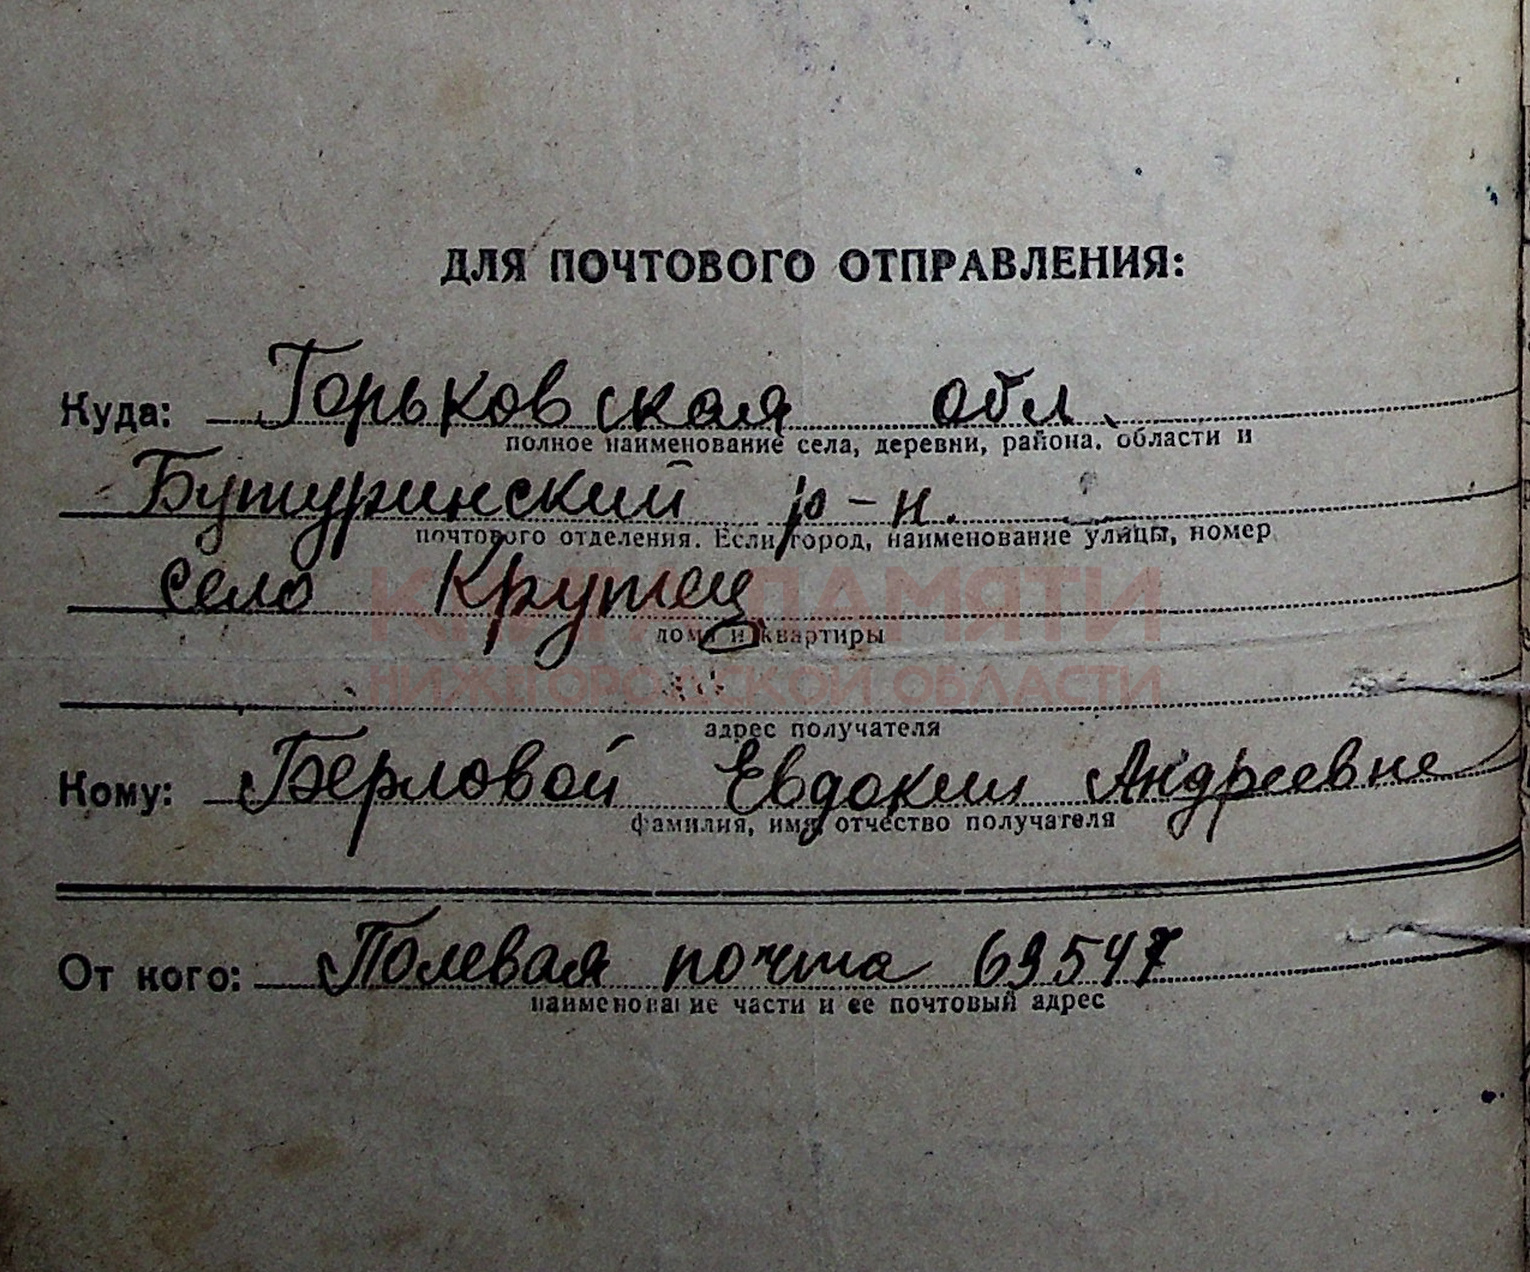 ДЛЯ ПОЧТОВОГО ОТПРАВЛЕНИЯ:
Куда: Горьковская обл.
полное наименование села, деревни, района, области и
Бутуринский р-н.
почтового отделения. Если город, наименование улицы, номер
село Крутец
дома и квартиры
КНИГА ПАМЯТИ
НИЖЕГОРОДСКОЙ ОБЛАСТИ
адрес получателя
Кому: Берловой Евдокии Андреевне
фамилия, имя, отчество получателя
От кого: Полевая почта 69547
наименование части и ее почтовый адрес